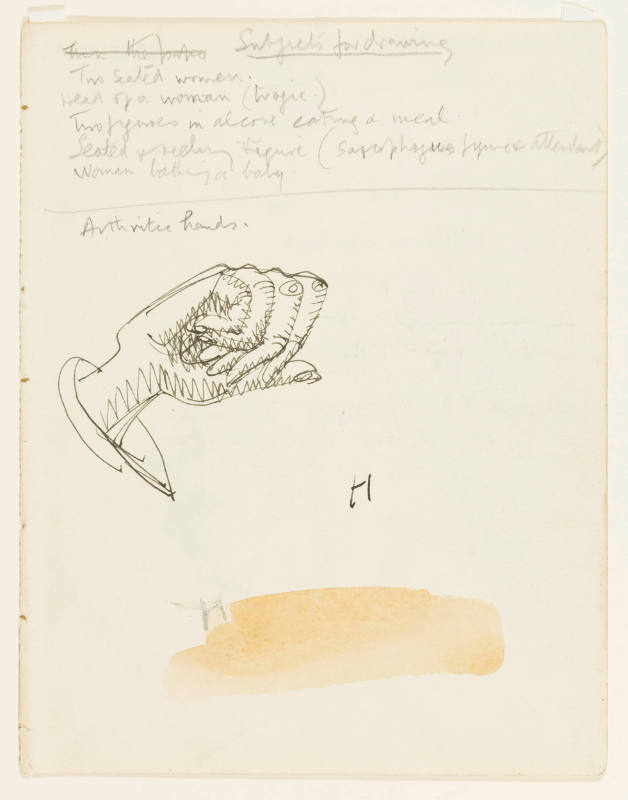 Subjects for drawing
Two Seated women.
Head of a woman (tragic)
Two figures in alcove eating a meal.
Seated & reclining Figure (Sarcophagus figure & attendant)
Woman bathing a baby.
Arthritic hands.
H
H